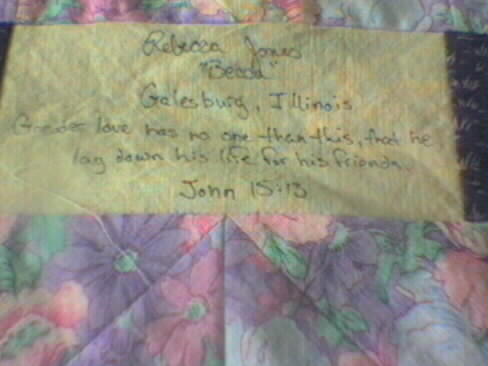 Rebecca Jones
"Becca"
Galesburg, Illinois
Greater love has no one than this, that he
lay down his life for his friends.
John 15:13